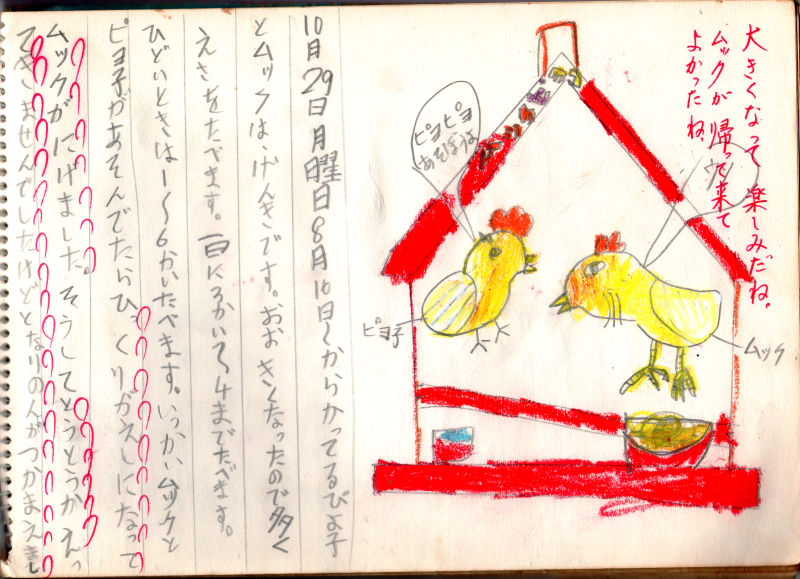 大きくなって楽しみだね。
ムックが帰って来て
よかったね。
ピヨピヨ
あそぼうよ
ウン
ピヨ子
ムック
10月29日月曜日8月10日からかってるぴよ子
とムックは、げんきです。おおきくなったので多く
えさをたべます。一日に3かいで4までたべます。
ひどいときは1〜6かいたべます。いっかいムックと
ピヨ子があそんでたらひっくりがえしになって
ムックがにげました。そうしてとうとうかえっ
てきませんでしたけどとなりの人がつかまえまし